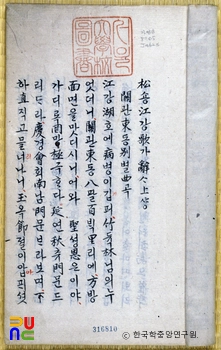 松숑江강歌가辭ᄉ上샹
關관東동別별曲곡
江강湖호애病병이깁퍼竹듁林님의누
엇더니關관東동八팔百ᄇᆡᆨ里리에方방
面면을맛디시니어와聖셩恩은이야
가디록罔망極극ᄒᆞ다延연秋츄門문드
리ᄃᆞ라慶경會회南남門문ᄇᆞ라보며下
하直직고믈너나니玉옥節졀이알ᄑᆡ셧
316810
© 한국학중앙연구원